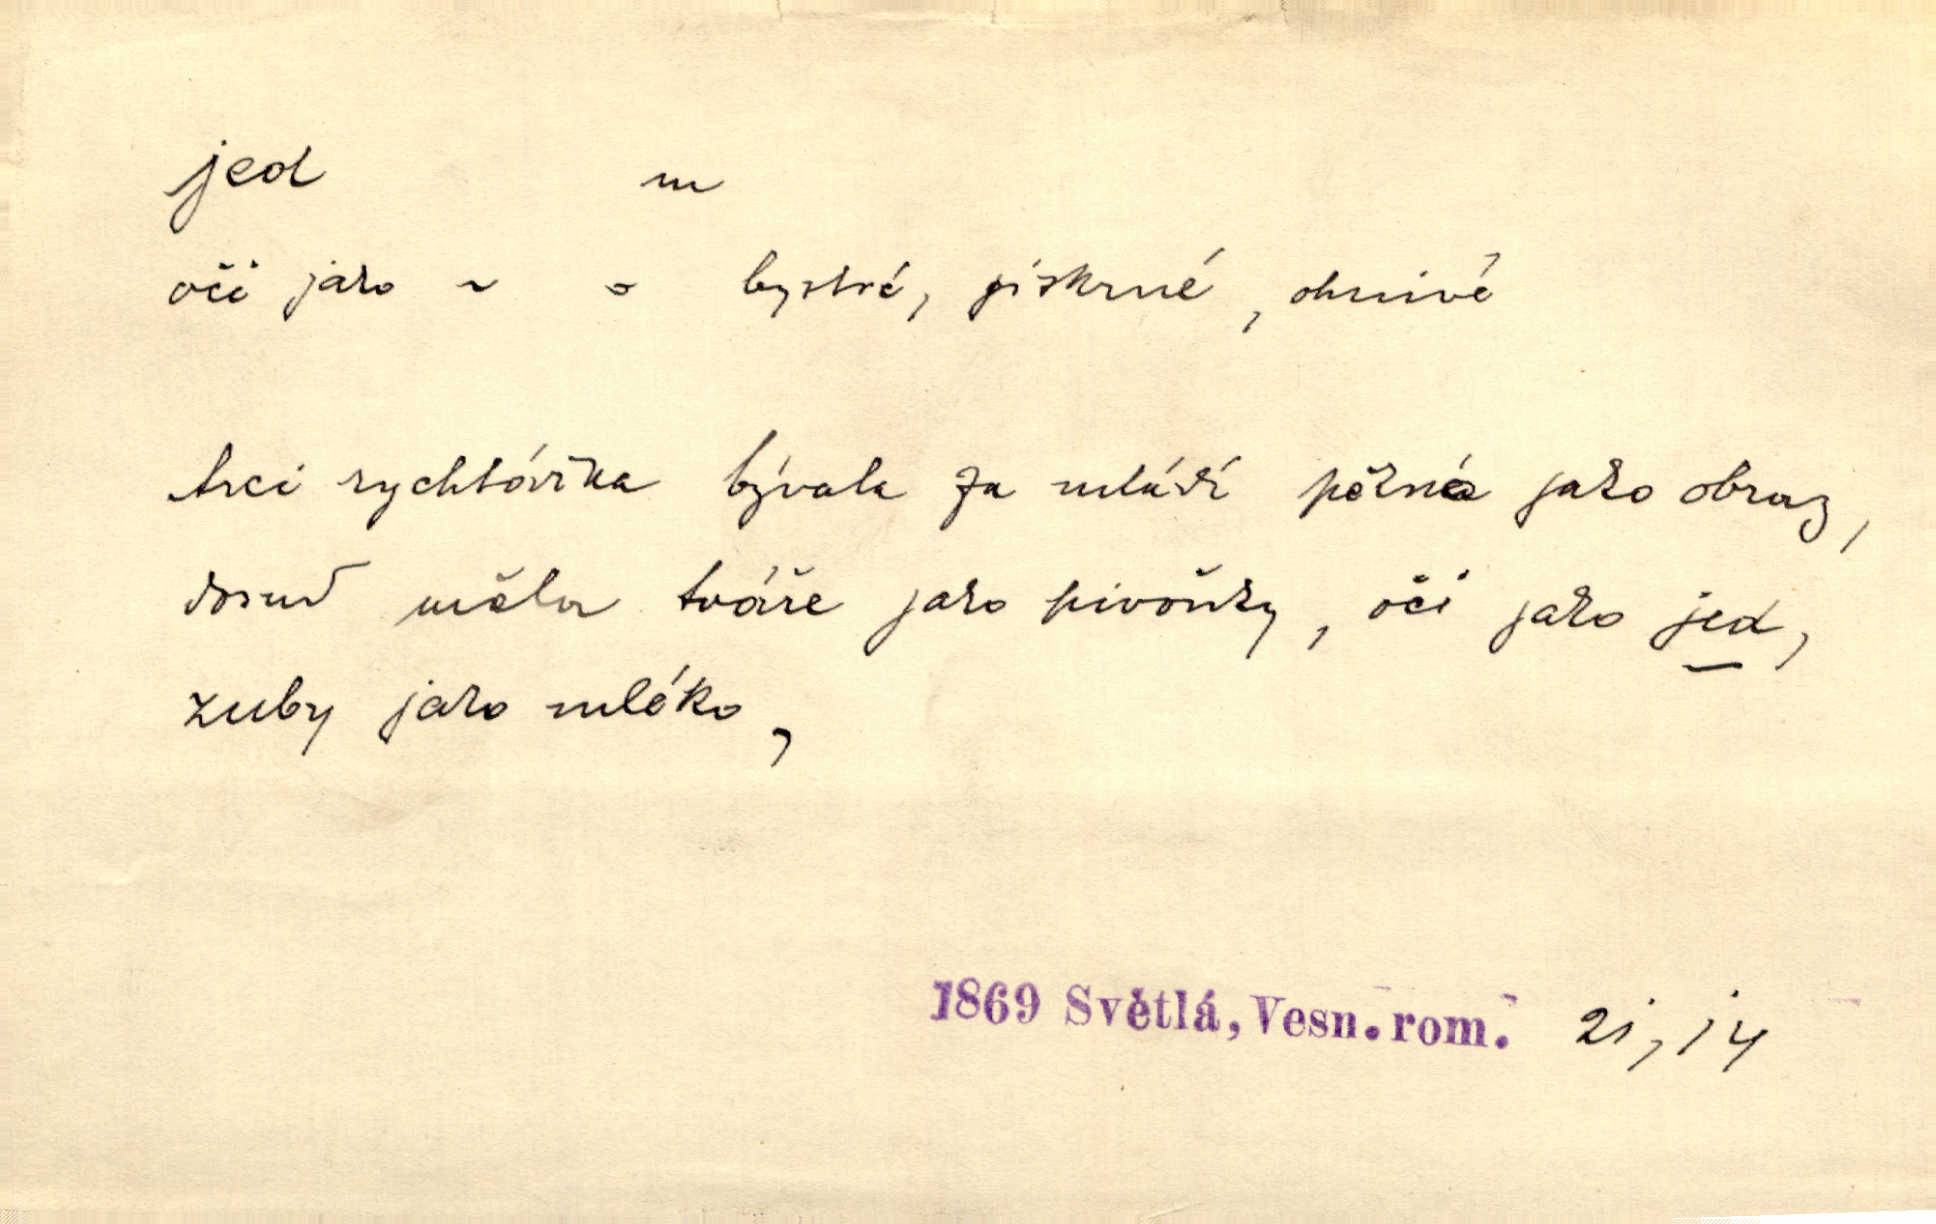 jed m
oči jako ~ o bystré, jiskrné, ohnivé
Arci rychtářka bývala za mládí pěkná jako obraz,
dosud měla tváře jako pivoňky, oči jako jed,
zuby jako mléko,
1869 Světlá, Vesn. rom. 21, 14